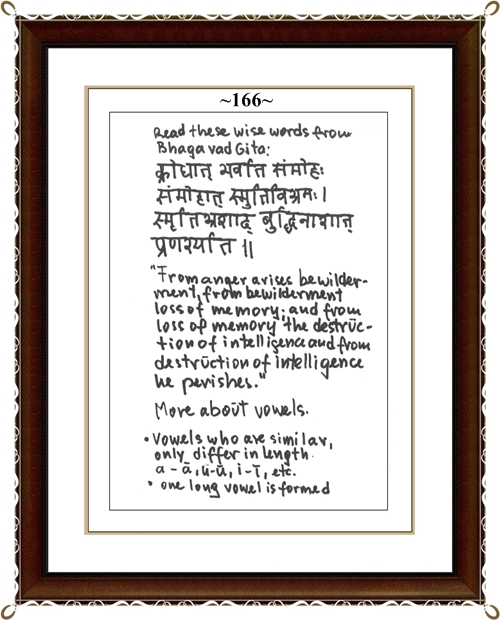 ~166~
Read these wise words from
Bhagavad Gita:
क्रोधात् भवति संमोहः
संमोहात् स्मृतिविभ्रमः।
स्मृतिभ्रशाद् बुद्धिनाशात्
प्रणश्यति ॥
"From anger arises bewilder-
ment, from bewilderment
loss of memory; and from
loss of memory the destrūc-
tion of intelligence and from
destrūction of intelligence
he perishes."
More aboūt vowels.
• Vowels who are similar,
only differ in length.
a - ā, u-ū, i-ī, etc.
• one long vowel is formed